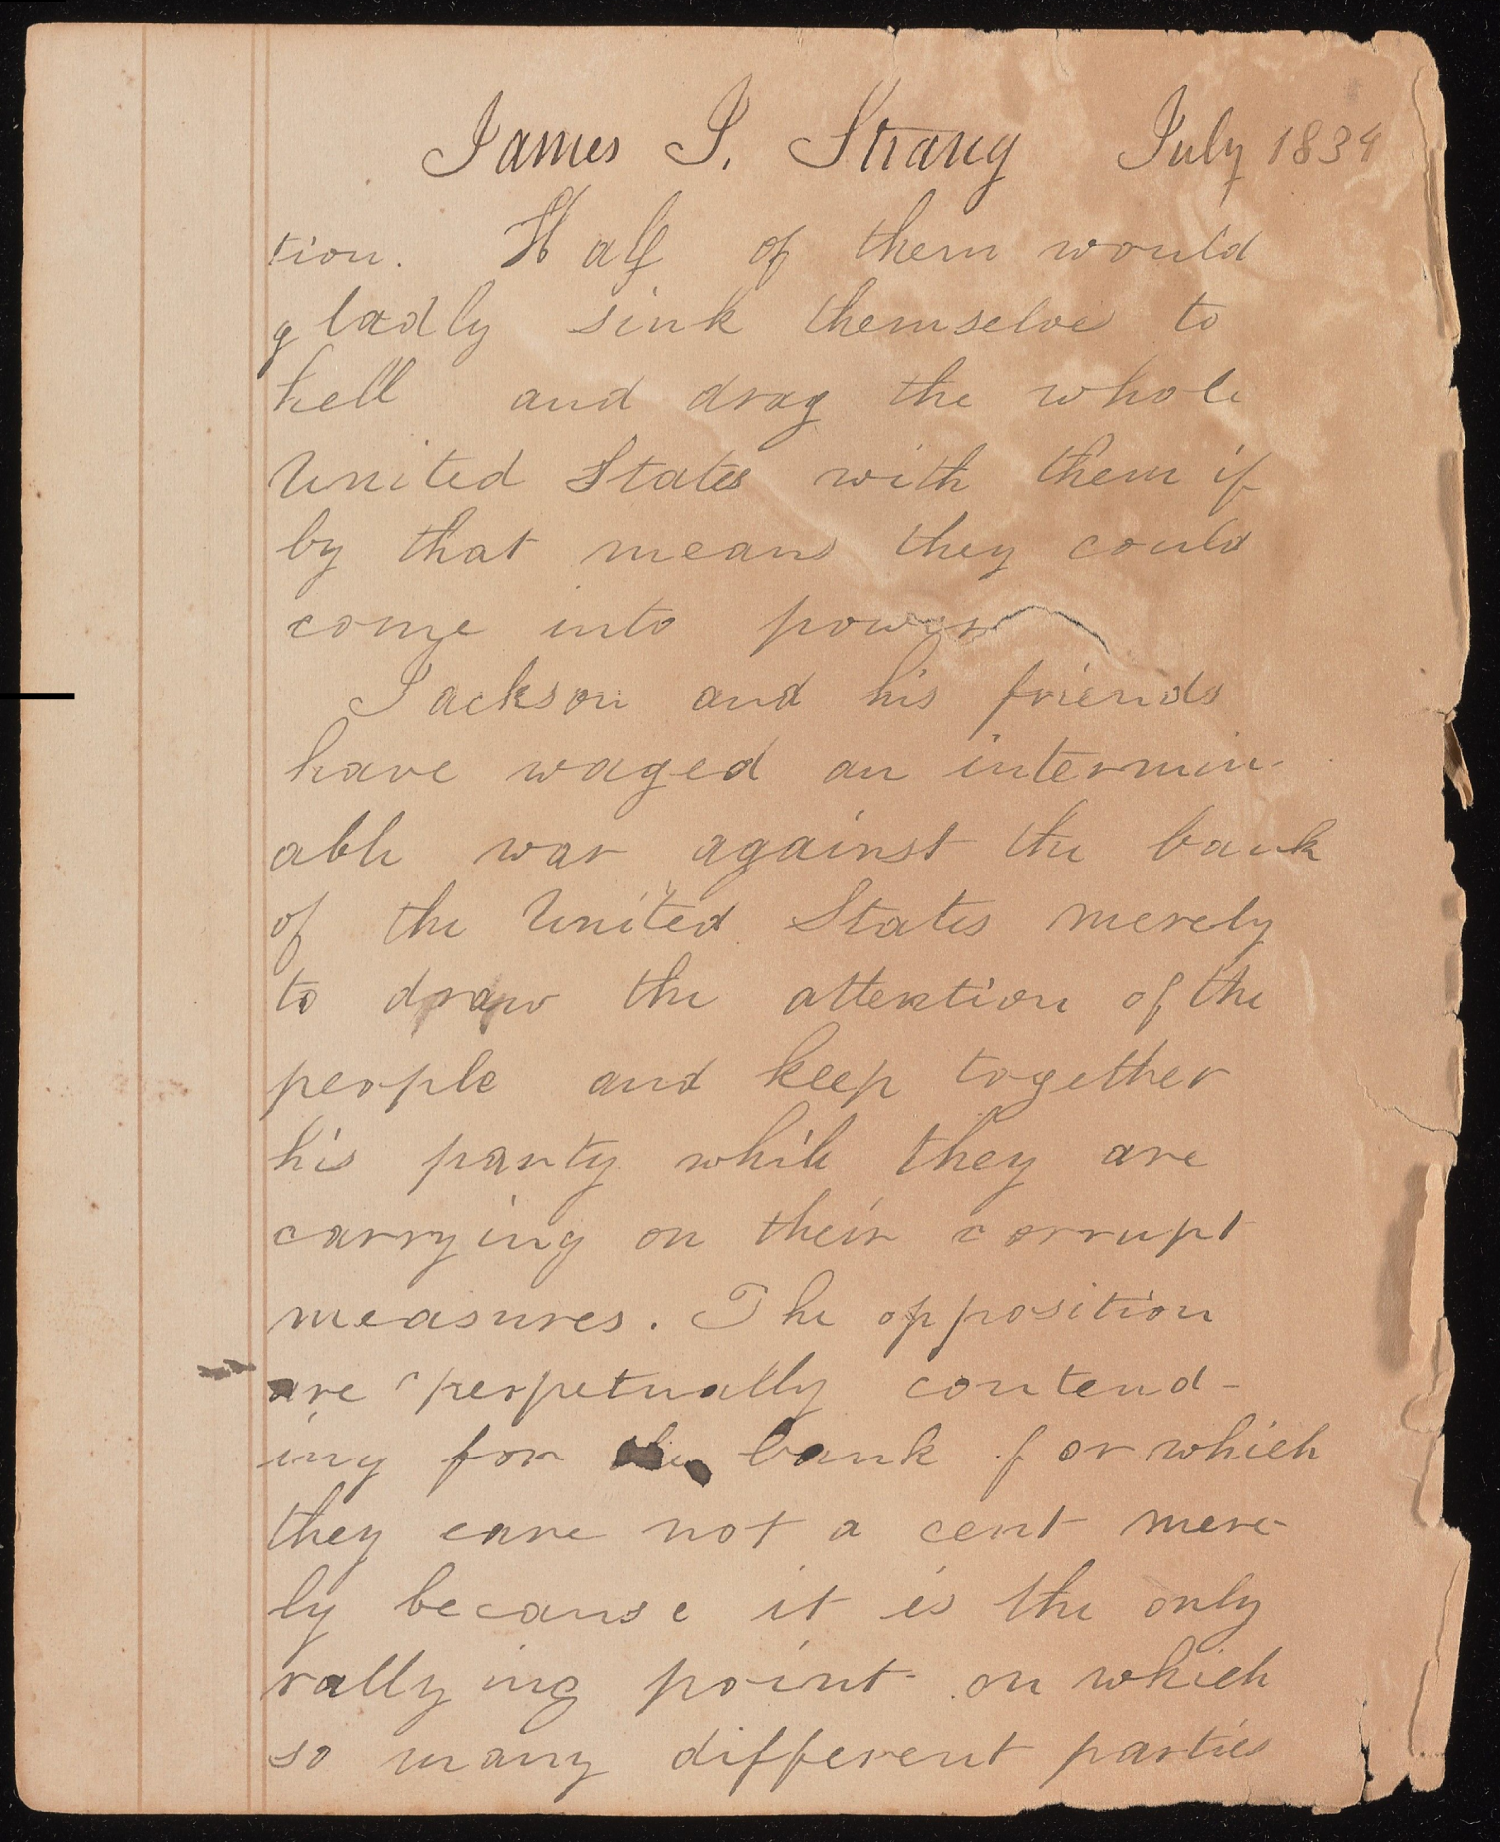 James J. Strang July 1834
tion. Half of them would
gladly sink themselve to
hell and drag the whole
United States with them if
by that means they could
come into power
Jackson and his friends
have waged an intermin-
able war against the bank
of the United States merely
to draw the attention of the
people and keep together
his party while they are
carrying on their corrupt
measures. The opposition
are perpetually contend-
ing for the bank for which
they care not a cent mere-
ly because it is the only
rallying point on which
so many different parties